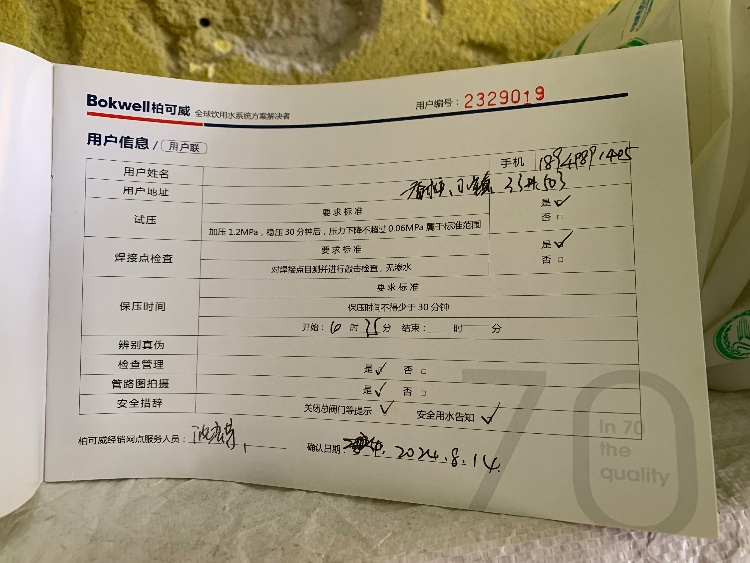 Bokwell柏可威 全球饮用水系统方案解决者 用户编号：2329019
用户信息 / 用户联
用户姓名 手机 18948891405
用户地址 小镇 503
试压 要求标准 是✓
加压1.2MPa，稳压30分钟后，压力下降不超过0.06MPa属于标准范围 否□
焊接点检查 要求标准 是✓
对焊接点目测并进行敲击检查，无渗水 否□
保压时间 要求标准
保压时间不得少于30分钟
开始： 时 分 结束： 时 分
辨别真伪
检查管理 是✓ 否□
管路图拍摄 是✓ 否□
安全措辞 关闭总阀门等提示 ✓ 安全用水告知 ✓
柏可威经销网点服务人员： 确认日期： 2024.8.14.
70
In 70
the
quality